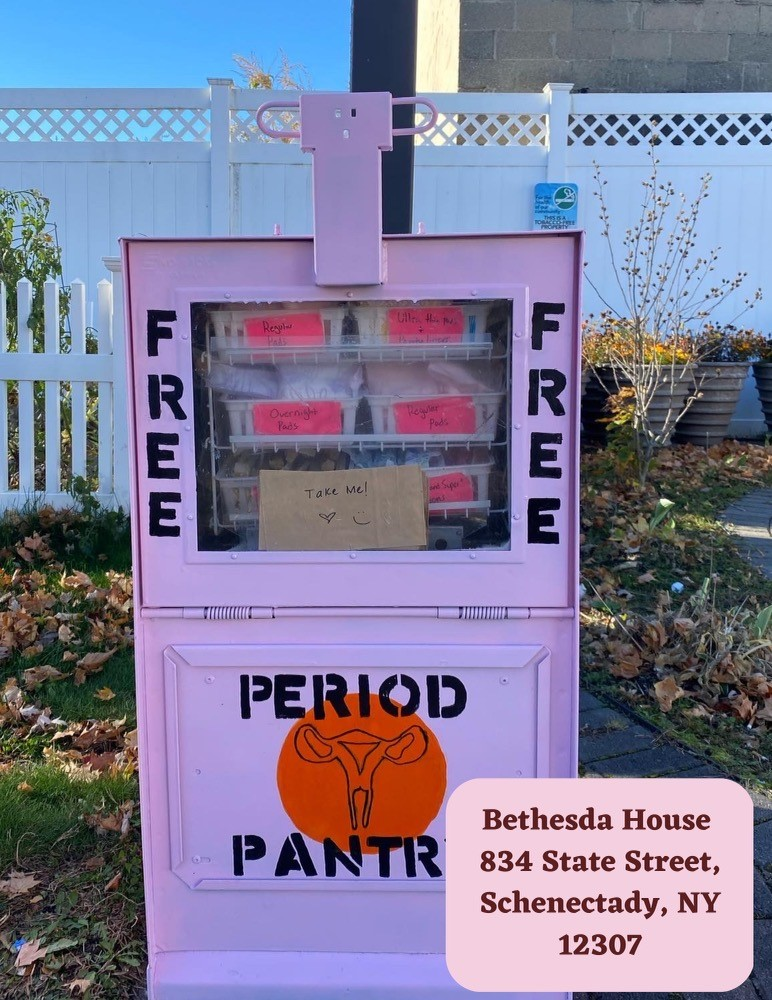 For the
health
of our
community
THIS IS A
TOBACCO-FREE
PROPERTY
FREE
FREE
Regular
Pads
Ultra thin pads
Overnight
Pads
Regular
Pads
Super
Take Me!
PERIOD
PANTR
Bethesda House
834 State Street,
Schenectady, NY
12307